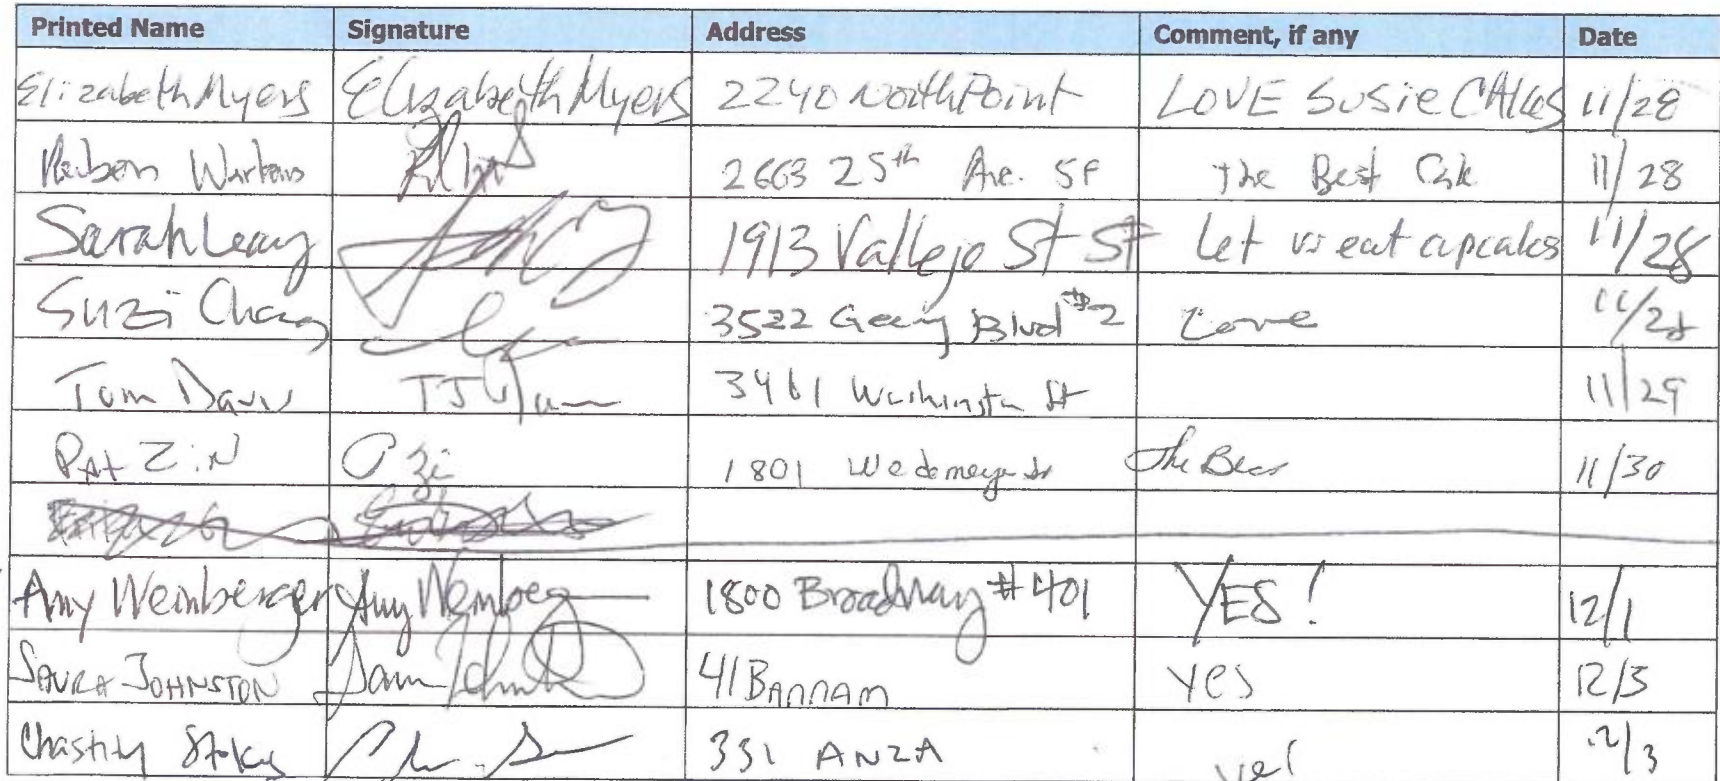 Printed Name Signature Address Comment, if any Date
Elizabeth Myers Elizabeth Myers 2240 North Point LOVE SUSIE CAKES 11/28
2663 25th Ave. SF the Best Cake 11/28
Sarah Leary 1913 Vallejo St SF Let us eat cupcakes 11/28
Suzi Chang 3522 Geary Blvd #2 Love 11/28
Tom Davis 3461 Washington St 11/29
PAt ZiN P Zi 1801 Wedemeyer St The Best 11/30
Amy Weinberger Amy Weinberg 1800 Broadway #401 YES! 12/1
JOHNSTON 41 BANNAM yes 12/3
Chastity Stokes 331 ANZA yes! 12/3